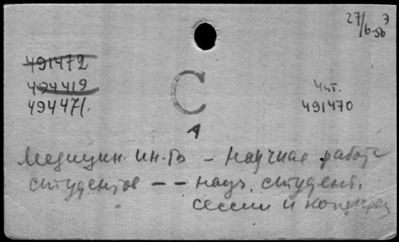 27/6-56 Э
491472
494419
494471.
С
Чит.
491470
Медицин. ин-ты – Научная работа
студентов – – науч. студенч.
сессии и конферен